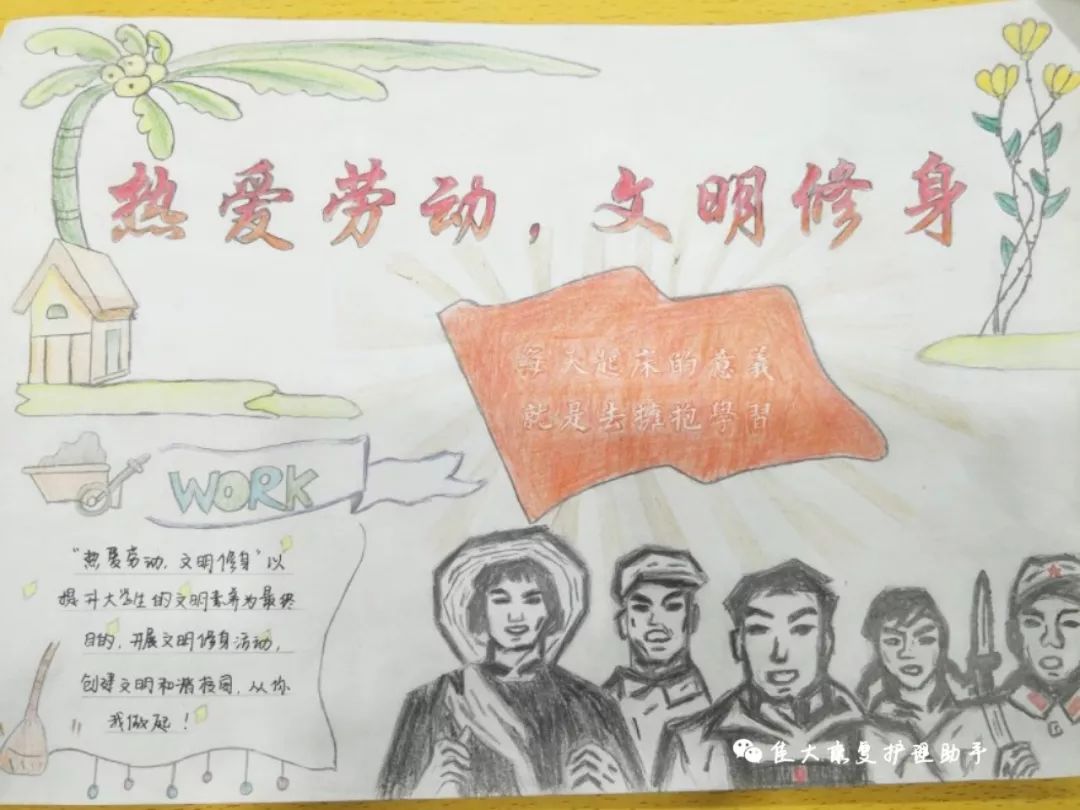 热爱劳动，文明修身
每天起床的意義
就是去擁抱學習
WORK
"热爱劳动，文明修身"以
提升大学生的文明素养为最终
目的，开展文明修身活动，
创建文明和谐校园，从你
我做起！
佳大康复护理助手